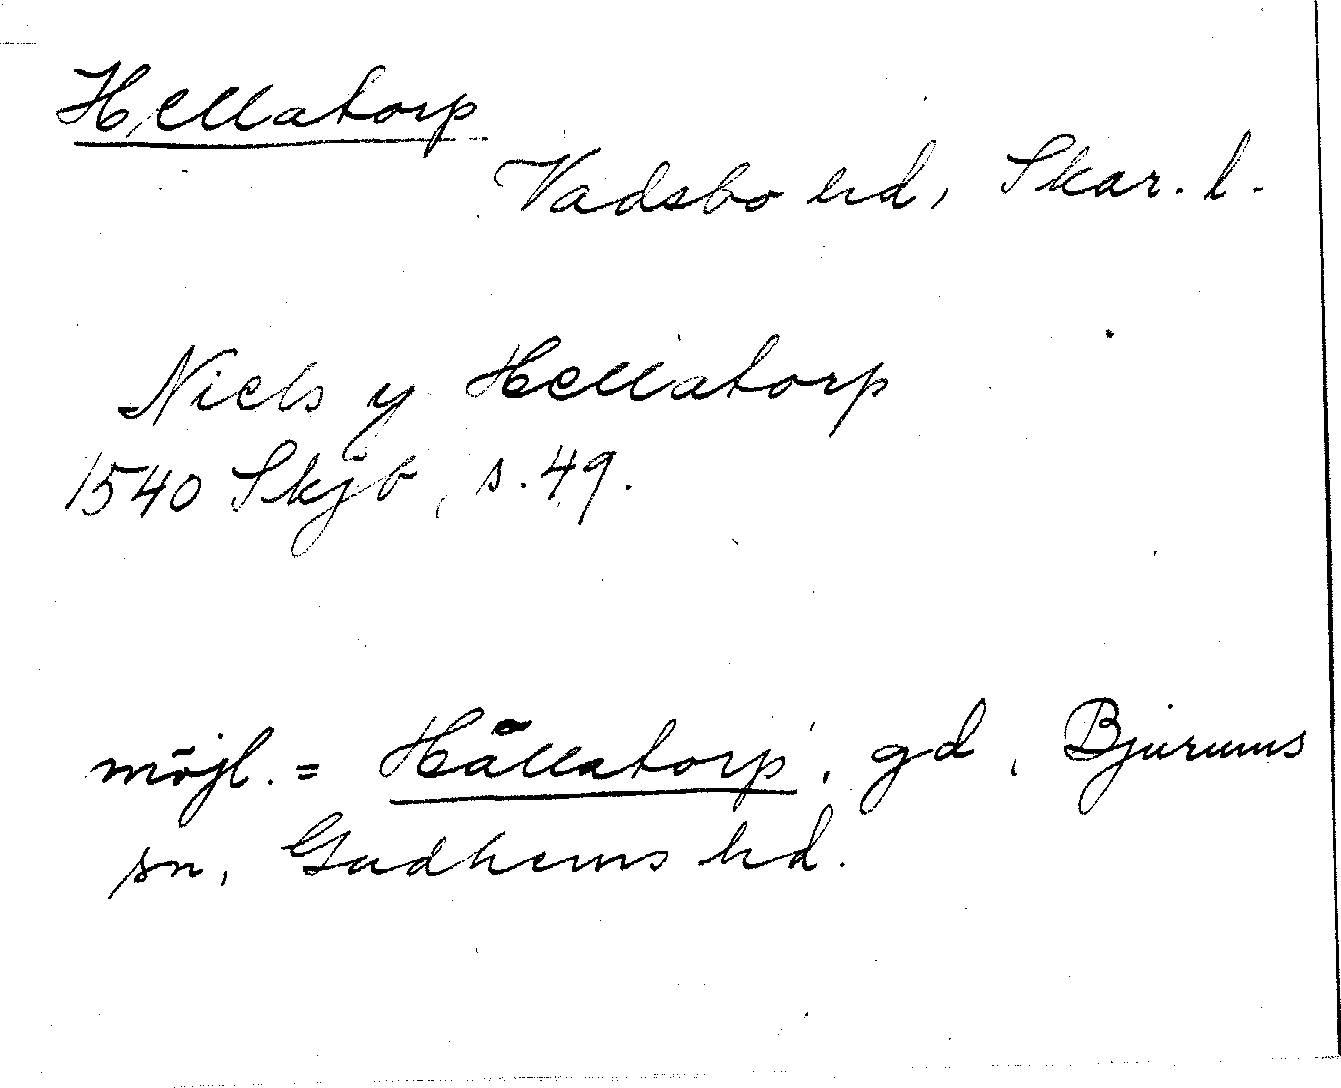 Hellatorp
Vadsbo hd, Skar. l.
Niels y Hellatorp
1540 Skjb, s. 49.
möjl. = Hällatorp, gd, Bjurums
sn, Gudhems hd.